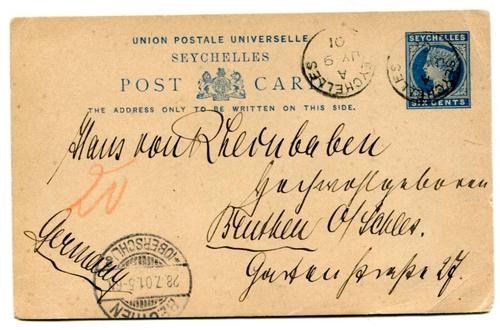 UNION POSTALE UNIVERSELLE
SEYCHELLES
POST CARD
THE ADDRESS ONLY TO BE WRITTEN ON THIS SIDE.
SEYCHELLES
A
JY 9
01
SEYCHELLES
SEYCHELLES
SIX CENTS
Hans von Rheinbaben
Hochwohlgeboren
20
Beuthen O/Schles.
Germany
Gartenstraße 27.
BEUTHEN (OBERSCHL)
28.7.01.5-6